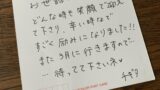 お世話
どんな時も笑顔で迎え
て下さり、辛い時など
すごく励みになりました!!
また3月に行きますので…
…待ってて下さいネ
チギタ